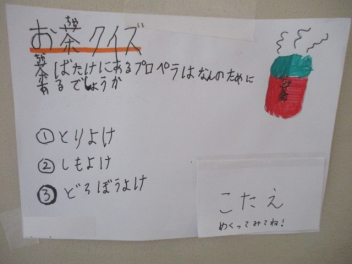 お茶クイズ
茶ばたけにあるプロペラはなんのために
あるでしょうか
①とりよけ
②しもよけ
③どろぼうよけ
こたえ
めくってみてね!